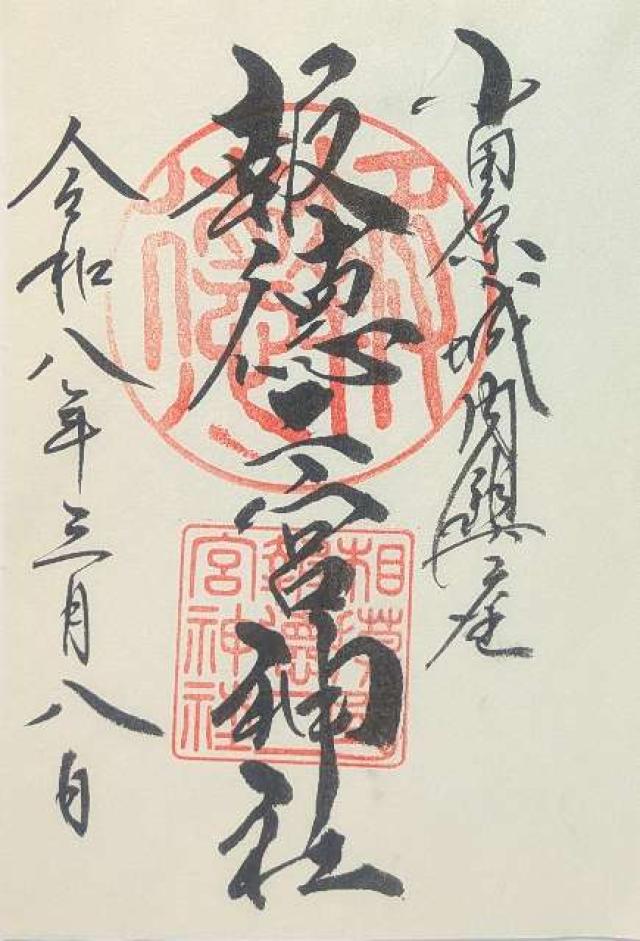 小田原城内鎮座
報徳二宮神社
令和八年三月八日
相模國
報徳二
宮神社